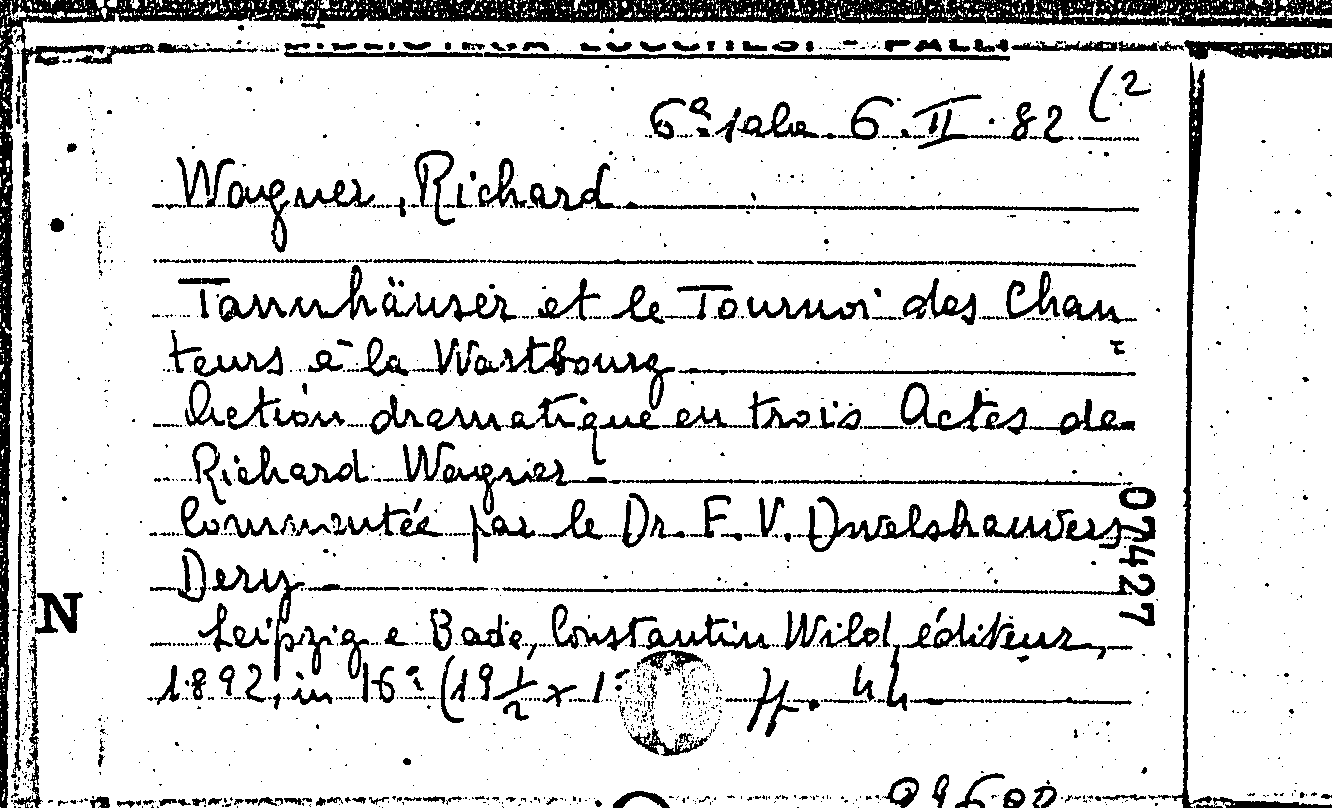 6ª sala. 6.II.82 (2
Wagner, Richard.
Tannhäuser et le Tournoi des Chan-
teurs à la Wartbourg.
Action dramatique en trois Actes de
Richard Wagner -
Commentée par le Dr. F. V. Dwelshauvers
Dery -
Leipzig e Bade, Constantin Wild, éditeur,
1892, in 16º (19 1/2 x 1 pp. 44 -
07427
N